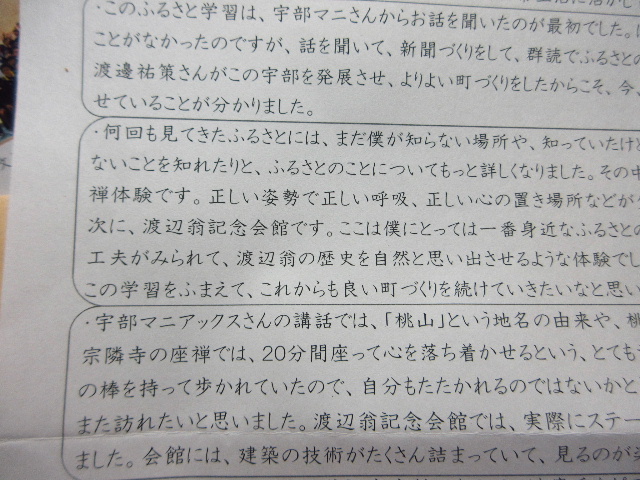 ・このふるさと学習は、宇部マニさんからお話を聞いたのが最初でした。
ことがなかったのですが、話を聞いて、新聞づくりをして、群読でふるさとの
渡邊祐策さんがこの宇部を発展させ、よりよい町づくりをしたからこそ、今、
せていることが分かりました。
・何回も見てきたふるさとには、まだ僕が知らない場所や、知っていたけど
ないことを知れたりと、ふるさとのことについてもっと詳しくなりました。その中
禅体験です。正しい姿勢で正しい呼吸、正しい心の置き場所などが
次に、渡辺翁記念会館です。ここは僕にとっては一番身近なふるさとの
工夫がみられて、渡辺翁の歴史を自然と思い出させるような体験でし
この学習をふまえて、これからも良い町づくりを続けていきたいなと思い
・宇部マニアックスさんの講話では、「桃山」という地名の由来や、桃
宗隣寺の座禅では、20分間座って心を落ち着かせるという、とても
の棒を持って歩かれていたので、自分もたたかれるのではないかと
また訪れたいと思いました。渡辺翁記念会館では、実際にステー
ました。会館には、建築の技術がたくさん詰まっていて、見るのが楽